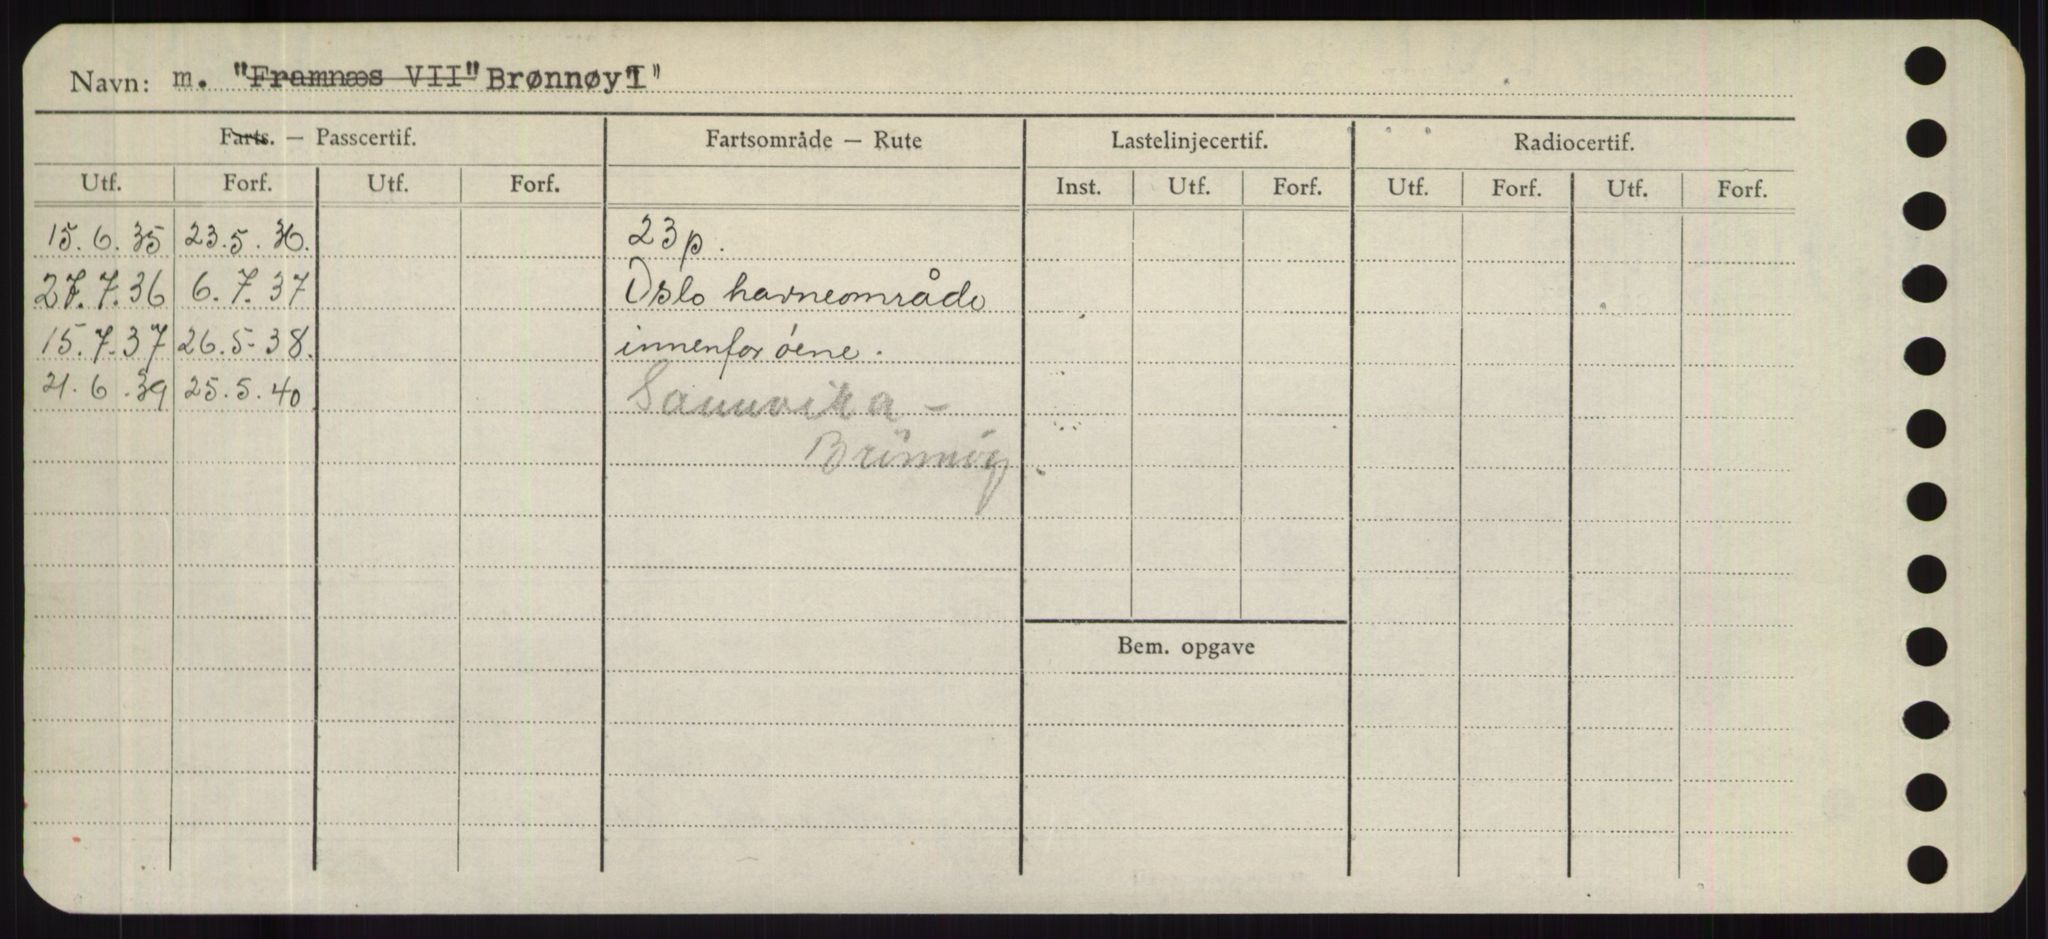 Navn: m. "Framnæs VII" Brønnøy I"
Farts. — Passcertif. Fartsområde — Rute Lastelinjecertif. Radiocertif.
Utf. Forf. Utf. Forf. Inst. Utf. Forf. Utf. Forf. Utf. Forf.
15.6.35 23.5.36. 23 p.
27.7.36 6.7.37 Oslo havneområde
15.7.37 26.5-38. innenfor öene.
21.6.39 25.5.40 Sannvika -
Brönnöy.
Bem. opgave